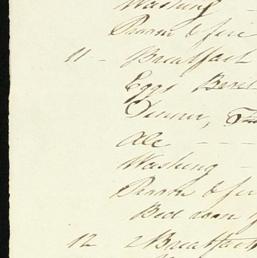 Washing -
Room & fire
11 - Breakfast
Eggs
Dinner,
Ale - - -
Washing -
Room & fire
Bed room
12 2 Breakfasts